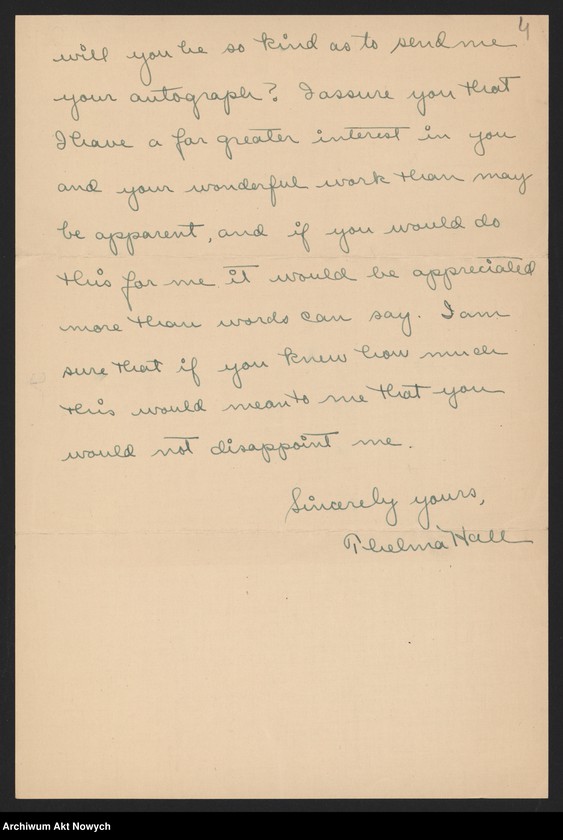 4
will you be so kind as to send me
your autograph? I assure you that
I have a far greater interest in you
and your wonderful work than may
be apparent, and if you would do
this for me it would be appreciated
more than words can say. I am
sure that if you knew how much
this would mean to me that you
would not disappoint me.
Sincerely yours,
Thelma Hall
Archiwum Akt Nowych